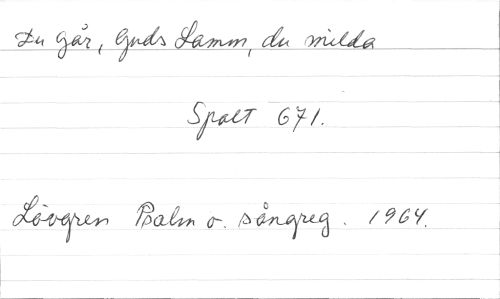 Du går, Guds Lamm, du milda
Spalt 671.
Lövgren Psalm o. sångreg. 1964.